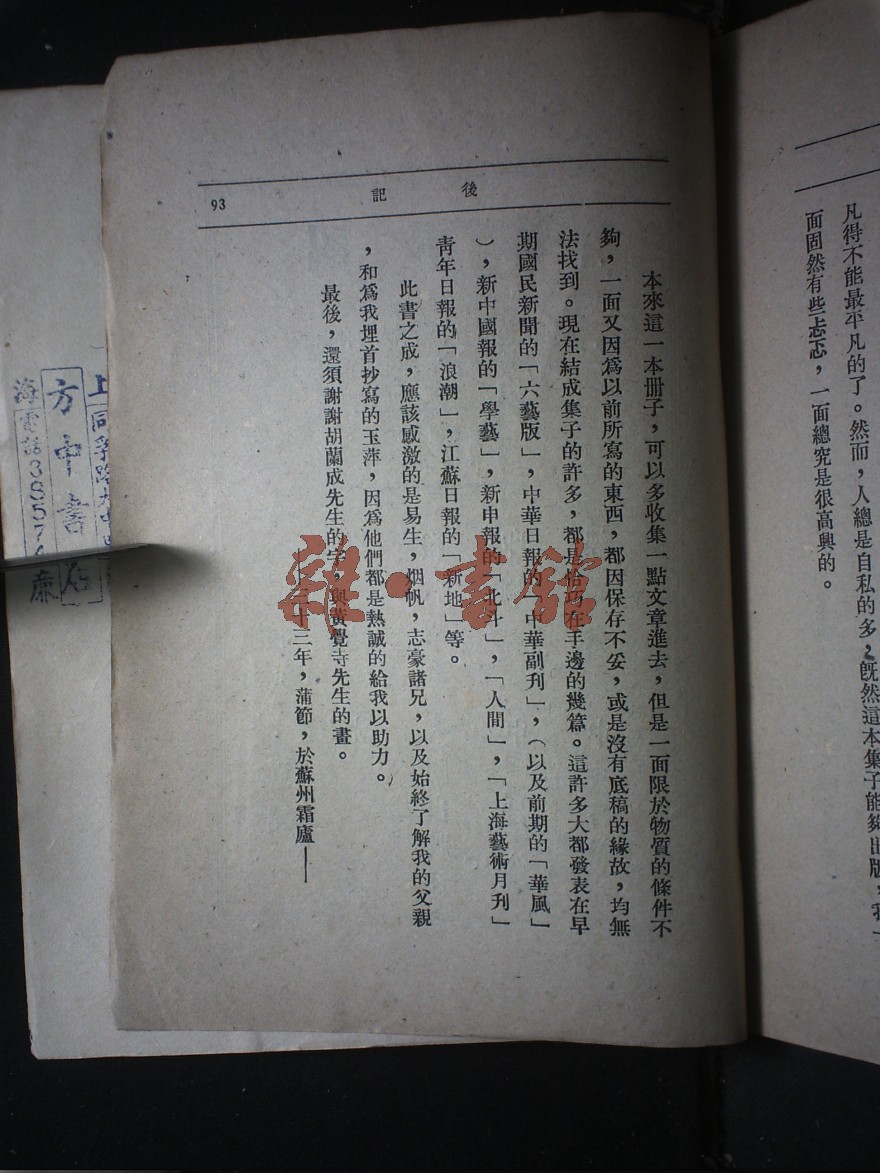 凡得不能最平凡的了。然而，人總是自私的多，既然這本集子能夠出版，我一
面固然有些忐忑，一面總究是很高興的。
後記
93
本來這一本册子，可以多收集一點文章進去，但是一面限於物質的條件不
夠，一面又因爲以前所寫的東西，都因保存不妥，或是沒有底稿的緣故，均無
法找到。現在結成集子的許多，都是恰巧在手邊的幾篇。這許多大都發表在早
期國民新聞的「六藝版」，中華日報的「中華副刊」，（以及前期的「華風」
），新中國報的「學藝」，新申報的「北斗」，「人間」，「上海藝術月刊」
靑年日報的「浪潮」，江蘇日報的「新地」等。
此書之成，應該感激的是易生，烟帆，志豪諸兄，以及始終了解我的父親
，和爲我埋首抄寫的玉萍，因爲他們都是熱誠的給我以助力。
最後，還須謝謝胡蘭成先生的字，與黃覺寺先生的畫。
三十三年，蒲節，於蘇州霜廬——
雜·書館
上
同孚路
方中書店
海電話38574